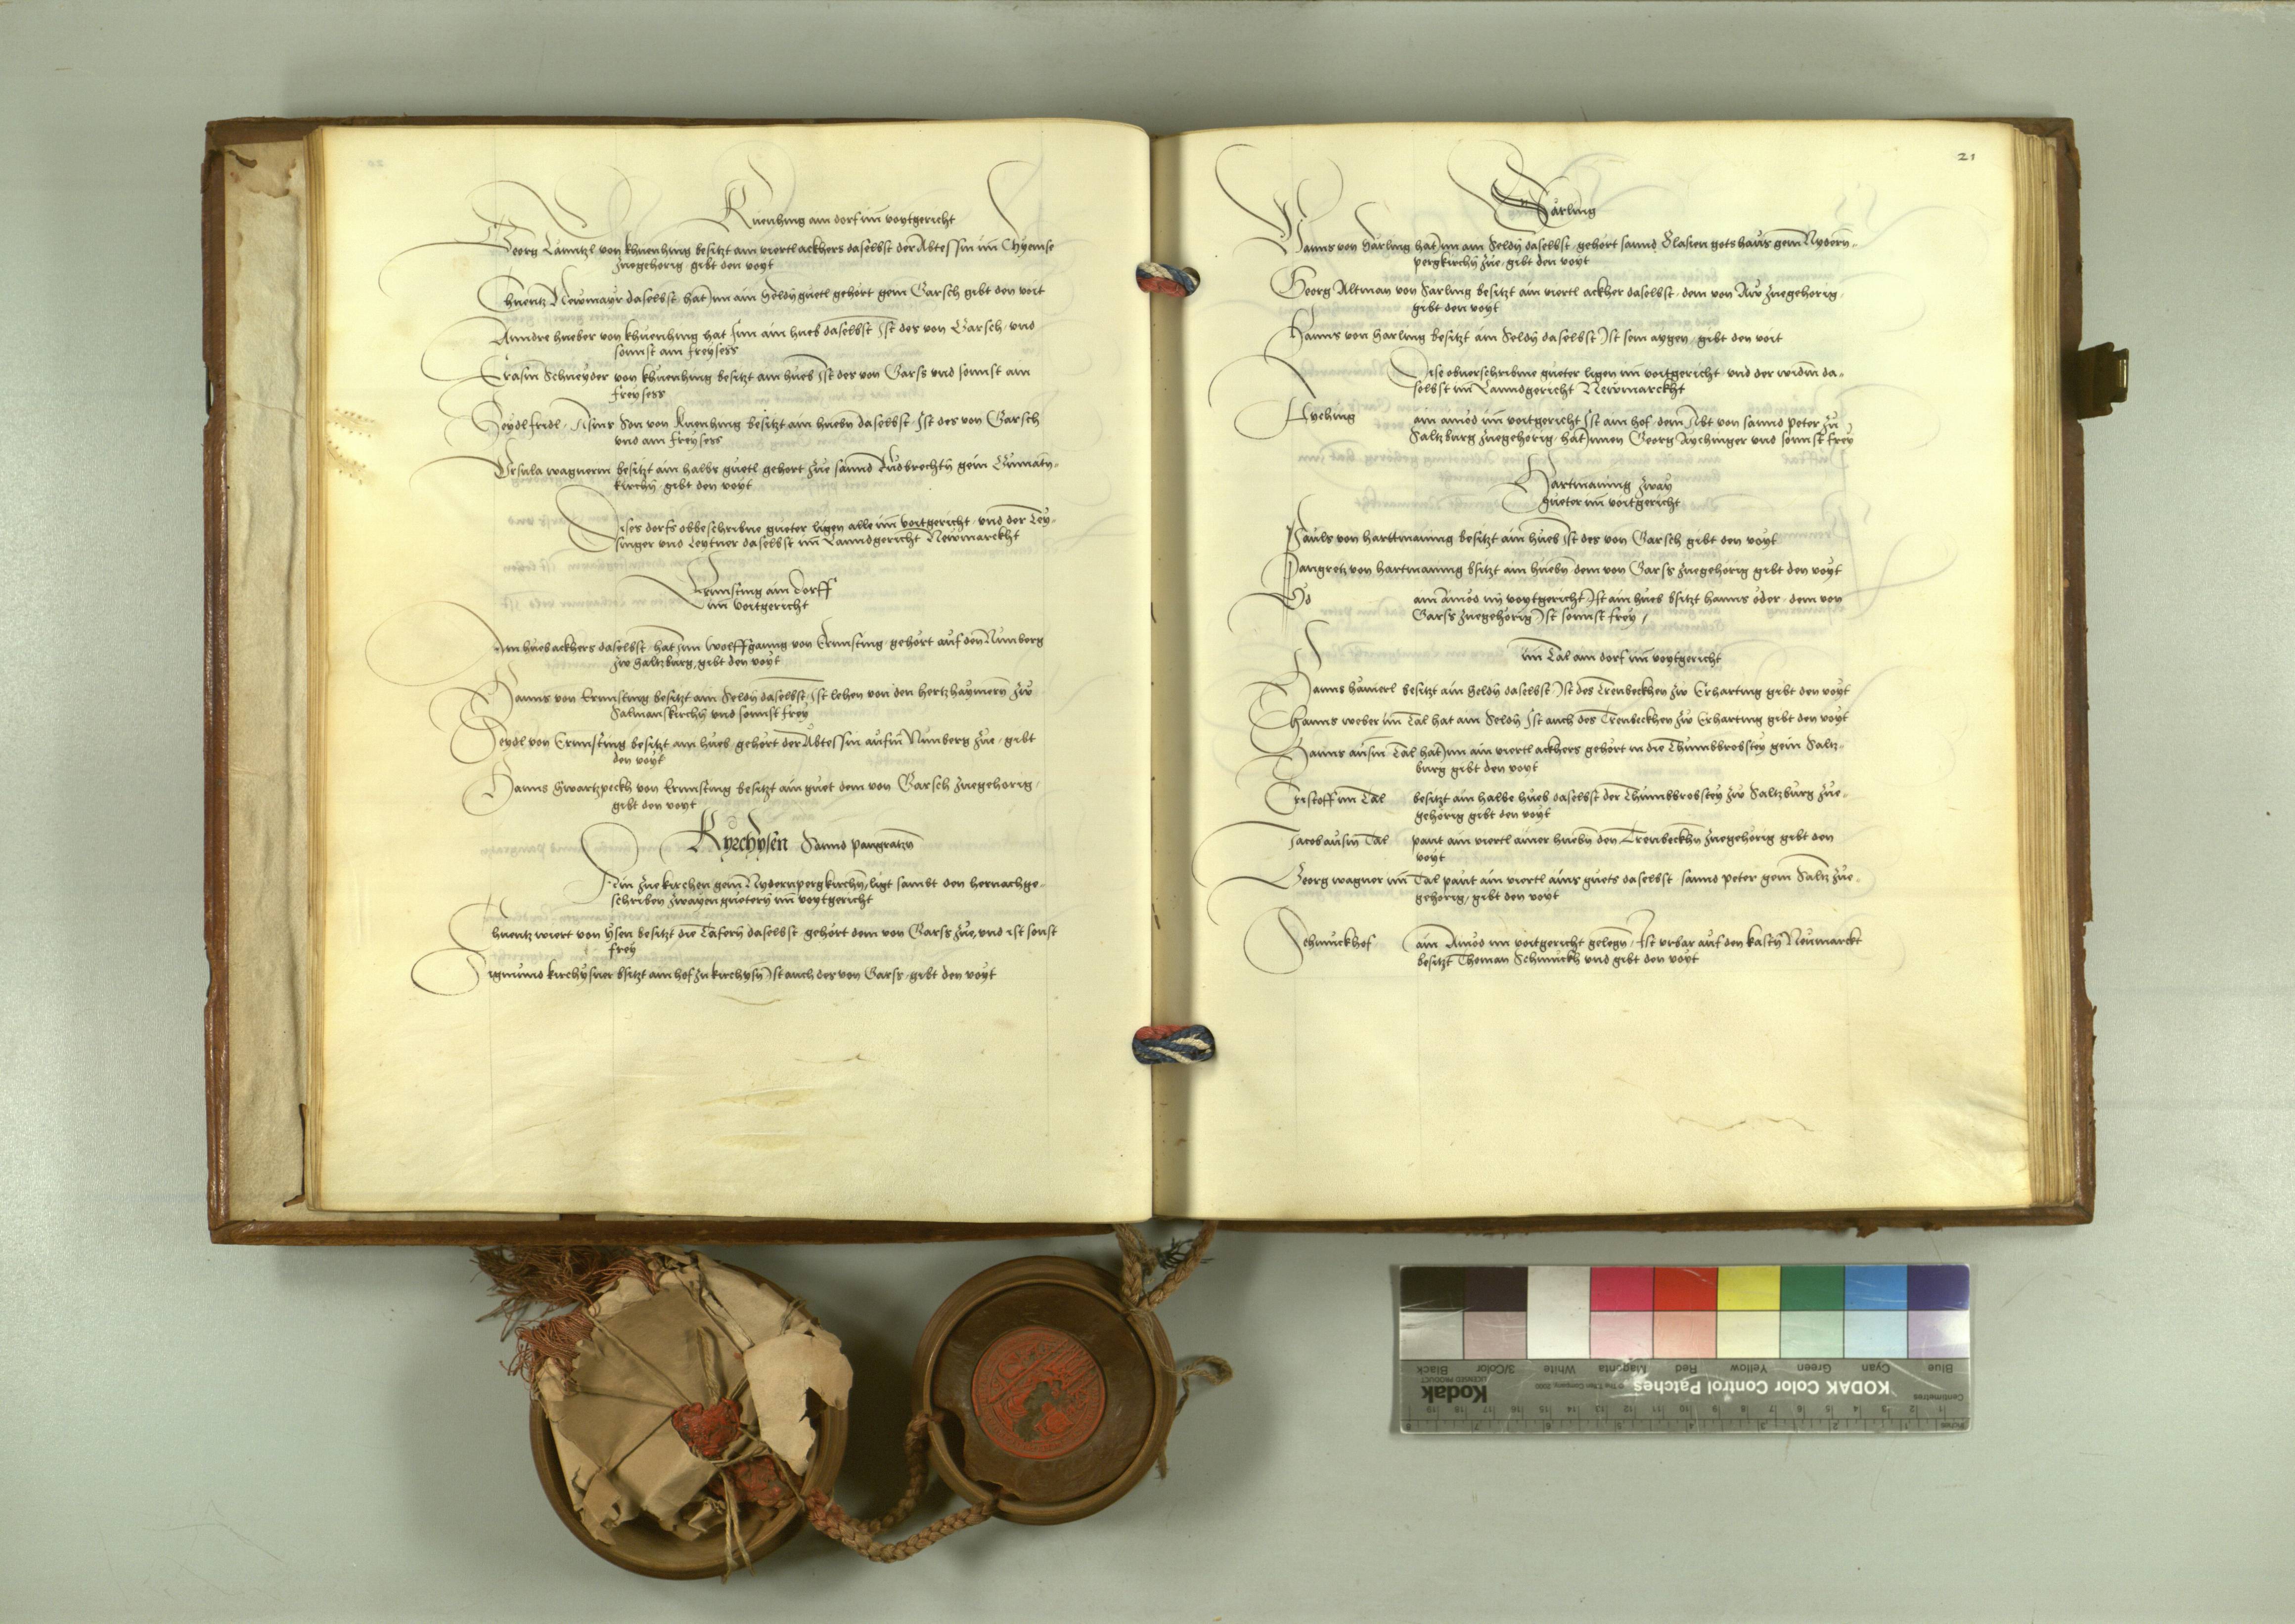 Kuenhing ain dorf im voytgericht
Georg Länntzl von khuenhing besitzt ain viertl ackhers daselbst der Abtessin im Chyemse
zuegehorig gibt den voyt
Chuentz Newmayr daselbst hat Inn ain Seldn guetl gehort gein Garsch gibt den voit
Anndre hueber von khuenhing hat Inn ain hueb daselbst Ist des von Garsch vnd
sonnst ain freysess
Erasm Schneyder von khuenhing besitzt ain hueb Ist des von Garss vnd sonnst ain
freysess
Seydl fridl sun von kuenhing besitzt ain huebn daselbst Ist des von Garsch
vnd ain freysess
Vrsula wagnerin besitzt ain halbs guetl gehort zue sannd Rudbrechtn gein
kirchn gibt den voyt
Dises dorfs obbeschribne gueter ligen alle im voitgericht vnd der Ley-
singer vnd Leytner daselbst im Lanndgericht Newmarckht
Ermsting ain dorff
im voitgericht
Ain hueb ackhers daselbst hat Inn Wolffganng von Ermsting gehort auf den Nunberg
zw Saltzburg, gibt den voyt
Hanns von Ermsting besitzt ain Seldn daselbst Ist lehen von den hertzhaymern zw
Salmanskirchn vnd sonnst frey
Seydl von Ermsting besitzt ain hueb gehort der Abtessin aufm Nunberg zue gibt
den voyt
Hanns Swartzpeckh von Ermsting besitzt ain guet dem von Garsch zuegehorig
gibt den voyt
Kyrchysen Sannd pangratzn
Ein zuekirchen gein Nydernpergkirchn, ligt sambt den hernachge-
schriben zwayen guetern im voytgericht
Chuentz wiert von ysen besitzt die Tafern daselbst gehort dem von Garss zue, vnd ist sonst
frey
Sigmund kirchysner bsitzt ain hof zu kirchysn Ist auch des von Garss gibt den voyt
21
Härling
Hanns von Härling hat Inn ain Seldn daselbst gehort sannd Blasien gotshaus gein Nydern-
pergkirchn zue gibt den voyt
Georg Altman von Harling besitzt ain viertl ackher daselbst dem von Aw zuegehorig
gibt den voyt
Hanns von harling besitzt ain Seldn daselbst Ist sein aygen gibt den voit
Dise obuerschribne gueter ligen im voitgericht vnd der widm da-
selbst im Lanndgericht Newmarckht
Ayching ain amod im voitgericht Ist ain hof dem Abt von sannd peter zu
Saltzburg zuegehorig hat Innen Georg Aychinger vnd sonnst frey
Hartmaning zway
gueter im voitgericht
Pauls von harttmaning besitzt ain hueb Ist des von Garsch gibt den voyt
Pangretz von hartmaning bsitzt ain huebn dem von Garss zuegehorig gibt den voyt
Öd ain Ainod im voytgericht Ist ain hueb bsitzt hanns öder dem von
Garss zuegehorig Ist sonnst frey
im Tal ain dorf im voytgericht
Hanns hämerl besitzt ain Seldn daselbst Ist des Trenbeckhen zw Erharting gibt den voyt
Hanns weber im Tal hat ain Seldn Ist auch des Trenbeckhen zw Erharting gibt den voyt
Hanns ausm Tal hat Inn ain viertl ackhers gehort in die Thumbbrobstey gein Saltz-
burg gibt den voyt
Cristoff im Tal besitzt ain halbe hueb daselbst der Thumbbrobstey zw Saltzburg zue-
gehorig gibt den voyt
Jacob ausm Tal paut ain viertl ainer huebn den Trenbeckhn zuegehorig gibt den
voyt
Georg wagner im Tal paut ain viertl ains guets daselbst sannd peter gein Saltz zue-
gehorig, gibt den voyt
Schmuckhof ain Ainod im voitgericht gelegn, Ist vrbar auf den kastn Neumarckt
besitzt Thoman Schmuckh vnd gibt den voyt
KODAK Color Control Patches
Kodak
LICENSED PRODUCT
Blue
Cyan
Green
Yellow
Red
Magenta
White
3/Color
Black
Centimetres
Inches